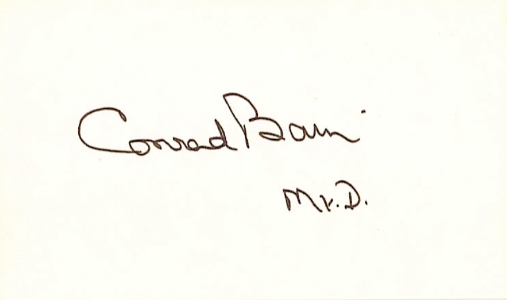 Conrad Bain
Mr. D.